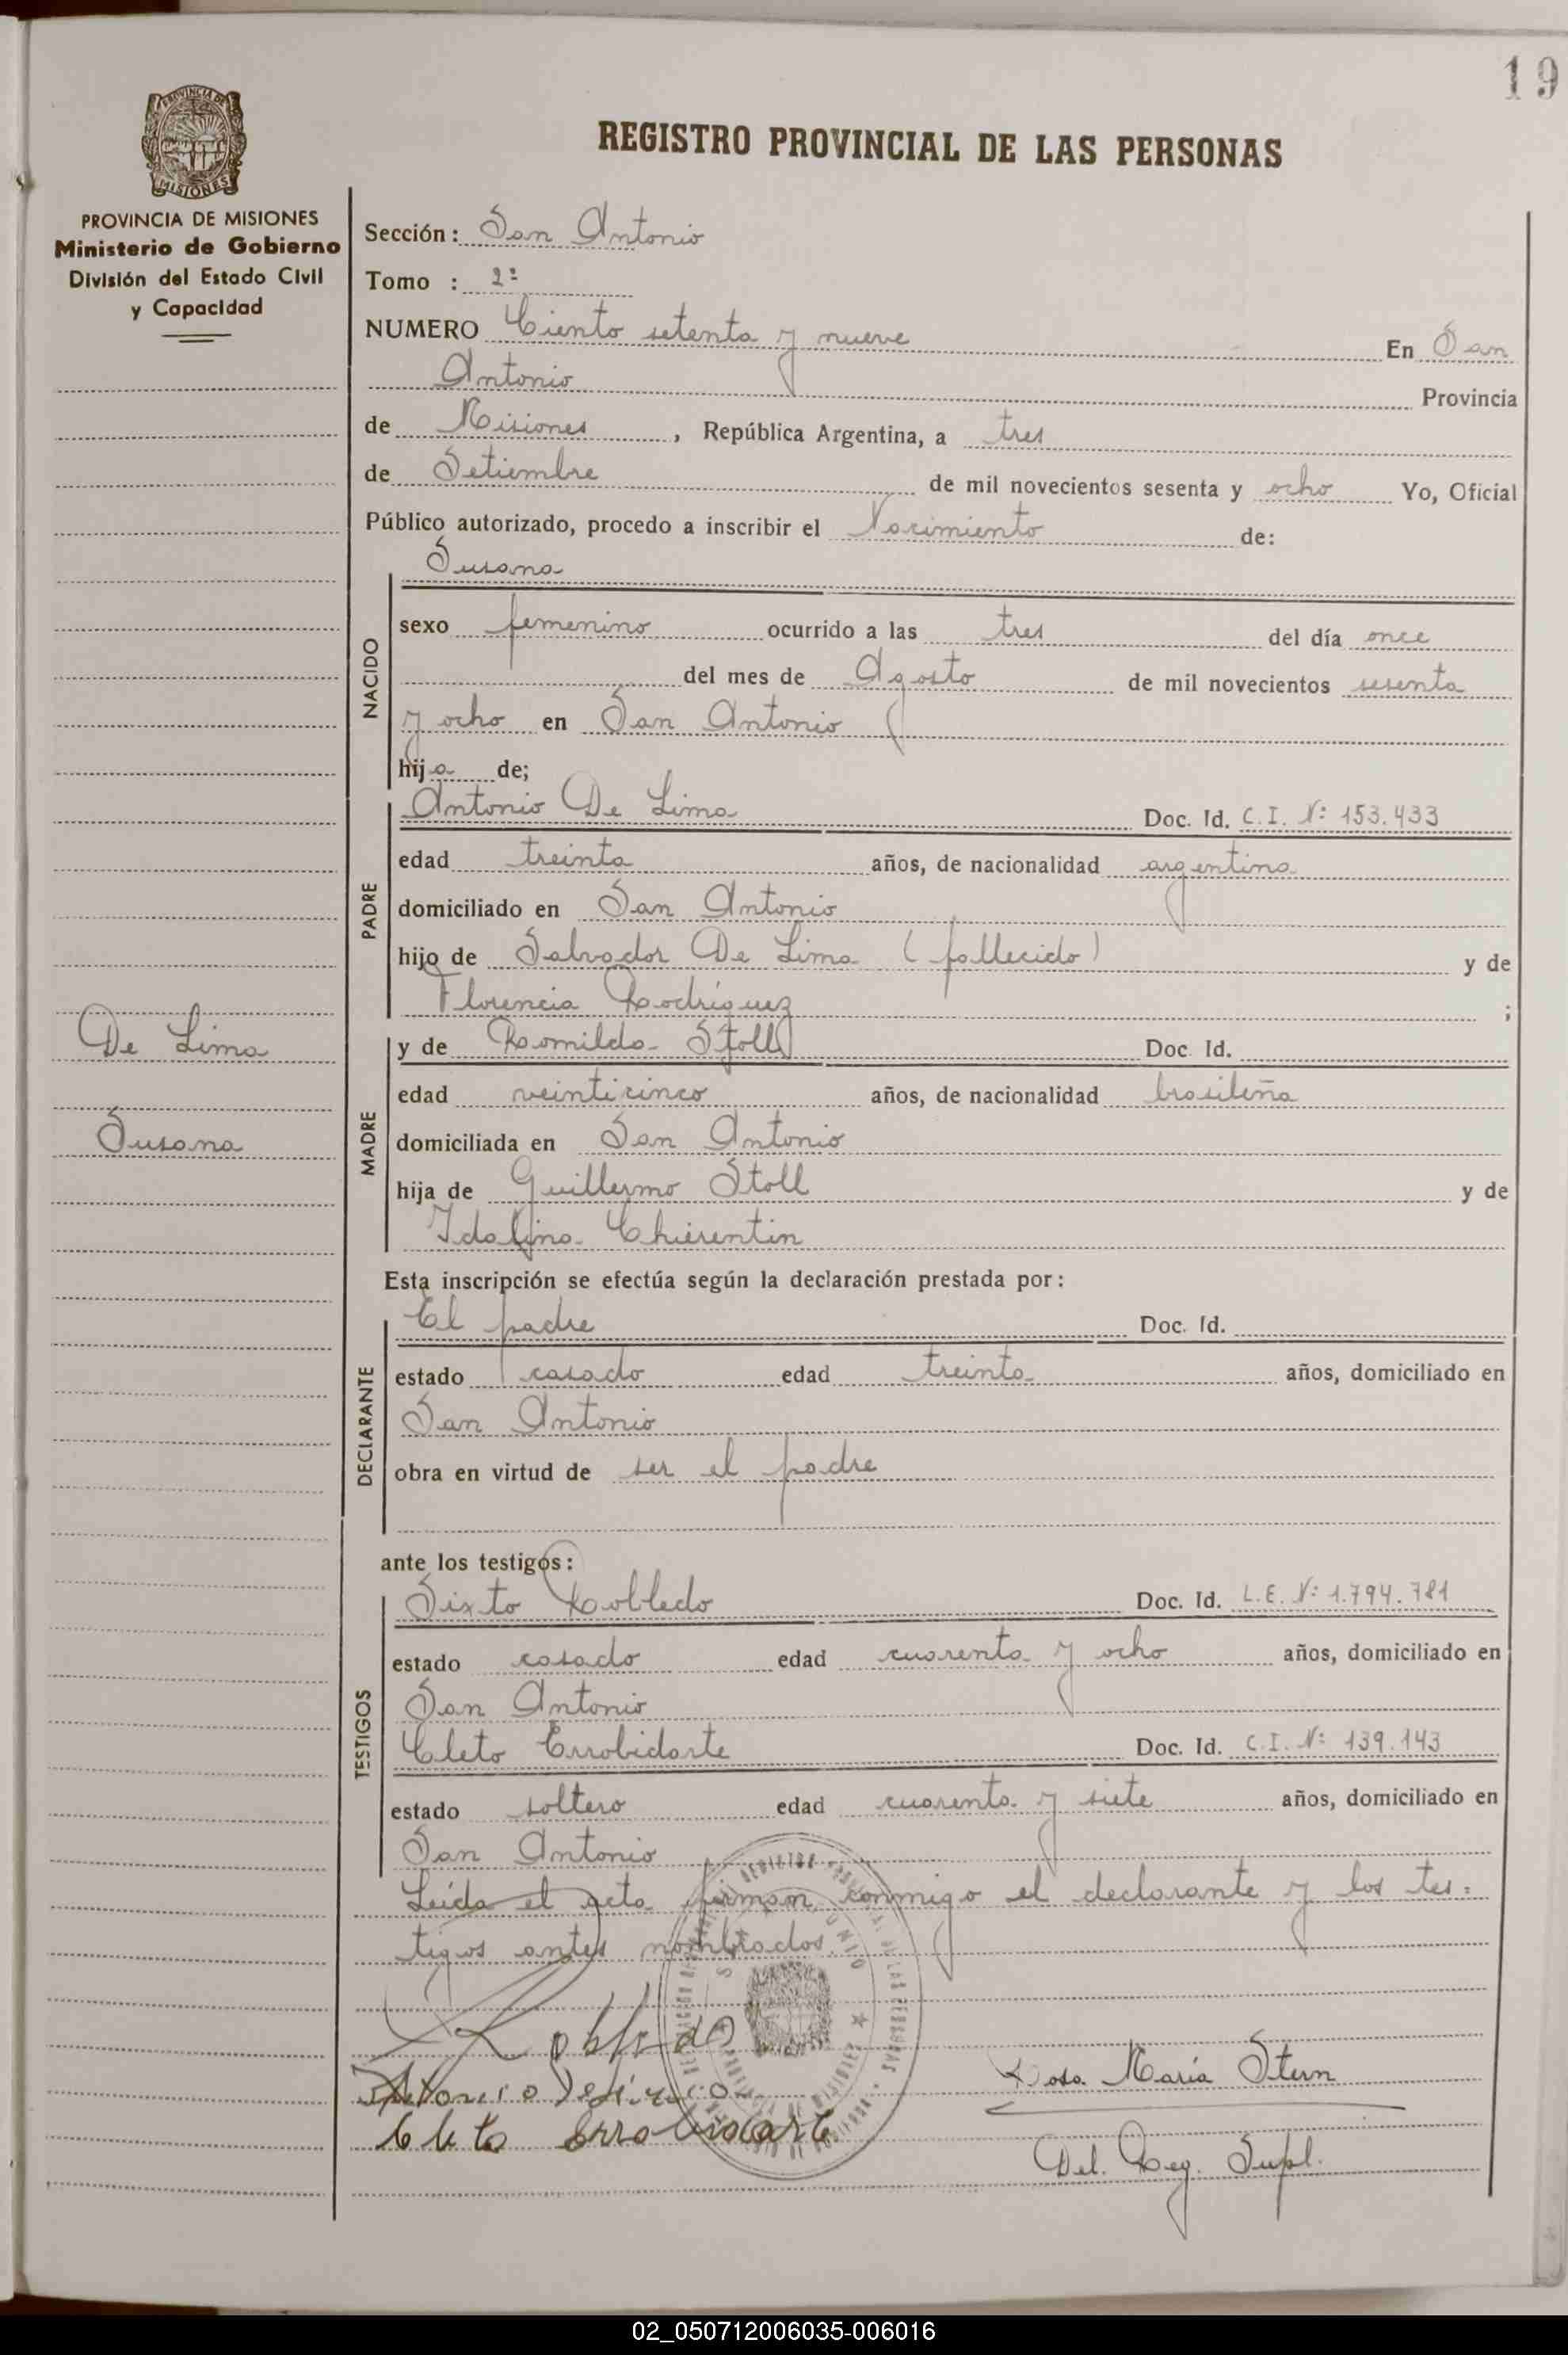 19
PROVINCIA DE MISIONES
Ministerio de Gobierno
División del Estado Civil
y Capacidad
REGISTRO PROVINCIAL DE LAS PERSONAS
Sección: San Antonio
Tomo : 2º
NUMERO Ciento setenta y nueve En San
Antonio Provincia
de Misiones, República Argentina, a tres
de Setiembre de mil novecientos sesenta y ocho Yo, Oficial
Público autorizado, procedo a inscribir el Nacimiento de:
Susana
NACIDO
sexo femenino ocurrido a las tres del día once
del mes de Agosto de mil novecientos sesenta
y ocho en San Antonio
hija de;
PADRE
Antonio De Lima Doc. Id. C.I. Nº 153.433
edad treinta años, de nacionalidad argentina
domiciliado en San Antonio
hijo de Salvador De Lima (fallecido) y de
Florencia Rodríguez ;
De Lima
Susana
MADRE
y de Romilda Stoll Doc. Id.
edad veinticinco años, de nacionalidad brasileña
domiciliada en San Antonio
hija de Guillermo Stoll y de
Idalina Chierentin
Esta inscripción se efectúa según la declaración prestada por:
DECLARANTE
El padre Doc. Id.
estado casado edad treinta años, domiciliado en
San Antonio
obra en virtud de ser el padre
ante los testigos:
TESTIGOS
Sixto Robledo Doc. Id. L.E. Nº 1.794.781
estado casado edad cuarenta y ocho años, domiciliado en
San Antonio
Cleto Errobidarte Doc. Id. C.I. Nº 139.143
estado soltero edad cuarenta y siete años, domiciliado en
San Antonio
Leída el acta firman conmigo el declarante y los tes=
tigos antes nombrados.
Robledo
Cleto Errobidarte
Rosa María Stern
Del. Reg. Supl.
02_050712006035-006016